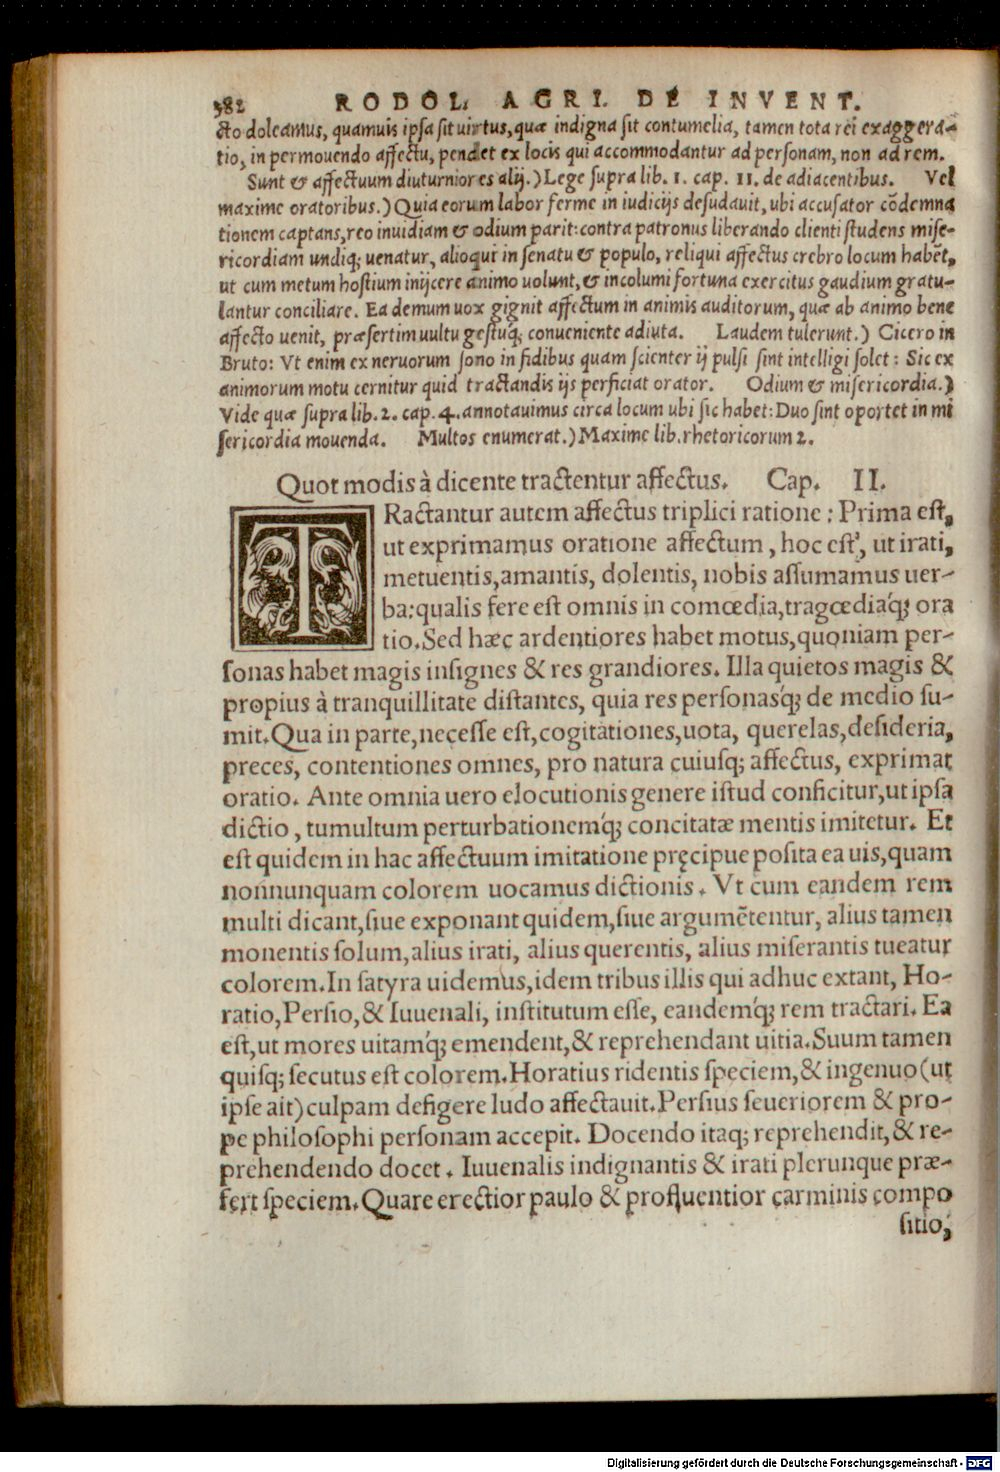 382 RODOL. AGRI. DE INVENT.
cto doleamus, quamuis ipsa sit uirtus, quæ indigna sit contumelia, tamen tota rei exaggera-
tio, in permouendo affectu, pendet ex locis qui accommodantur ad personam, non ad rem.
Sunt & affectuum diuturniores alij.) Lege supra lib. 1. cap. 11. de adiacentibus. Vel
maxime oratoribus.) Quia eorum labor ferme in iudicijs desudauit, ubi accusator cōdemna
tionem captans, reo inuidiam & odium parit: contra patronus liberando clienti studens mise-
ricordiam undiq; uenatur, alioqui in senatu & populo, reliqui affectus crebro locum habēt,
ut cum metum hostium inijcere animo uolunt, & incolumi fortuna exercitus gaudium gratu-
lantur conciliare. Ea demum uox gignit affectum in animis auditorum, quæ ab animo bene
affecto uenit, præsertim uultu gestuq́; conueniente adiuta. Laudem tulerunt.) Cicero in
Bruto: Vt enim ex neruorum sono in fidibus quam scienter ij pulsi sint intelligi solet: Sic ex
animorum motu cernitur quid tractandis ijs perficiat orator. Odium & misericordia.)
Vide quæ supra lib. 2. cap. 4. annotauimus circa locum ubi sic habet: Duo sint oportet in mi
sericordia mouenda. Multos enumerat.) Maxime lib. rhetoricorum 2.
Quot modis à dicente tractentur affectus. Cap. II.
TRactantur autem affectus triplici ratione: Prima est,
ut exprimamus oratione affectum, hoc est, ut irati,
metuentis, amantis, dolentis, nobis assumamus uer-
ba: qualis fere est omnis in comœdia, tragœdiaq́; ora
tio. Sed hæc ardentiores habet motus, quoniam per-
sonas habet magis insignes & res grandiores. Illa quietos magis &
propius à tranquillitate distantes, quia res personasq́; de medio su-
mit. Qua in parte, necesse est, cogitationes, uota, querelas, desideria,
preces, contentiones omnes, pro natura cuiusq; affectus, exprimat
oratio. Ante omnia uero elocutionis genere istud conficitur, ut ipsa
dictio, tumultum perturbationemq́; concitatæ mentis imitetur. Et
est quidem in hac affectuum imitatione pręcipue posita ea uis, quam
nonnunquam colorem uocamus dictionis. Vt cum eandem rem
multi dicant, siue exponant quidem, siue argumētentur, alius tamen
monentis solum, alius irati, alius querentis, alius miserantis tueatur
colorem. In satyra uidemus, idem tribus illis qui adhuc extant, Ho-
ratio, Persio, & Iuuenali, institutum esse, eandemq́; rem tractari. Ea
est, ut mores uitamq́; emendent, & reprehendant uitia. Suum tamen
quisq; secutus est colorem. Horatius ridentis speciem, & ingenuo (ut
ipse ait) culpam defigere ludo affectauit. Persius seueriorem & pro-
pe philosophi personam accepit. Docendo itaq; reprehendit, & re-
prehendendo docet. Iuuenalis indignantis & irati plerunque præ-
fert speciem. Quare erectior paulo & profluentior carminis compo
sitio,
Digitalisierung gefördert durch die Deutsche Forschungsgemeinschaft - DFG